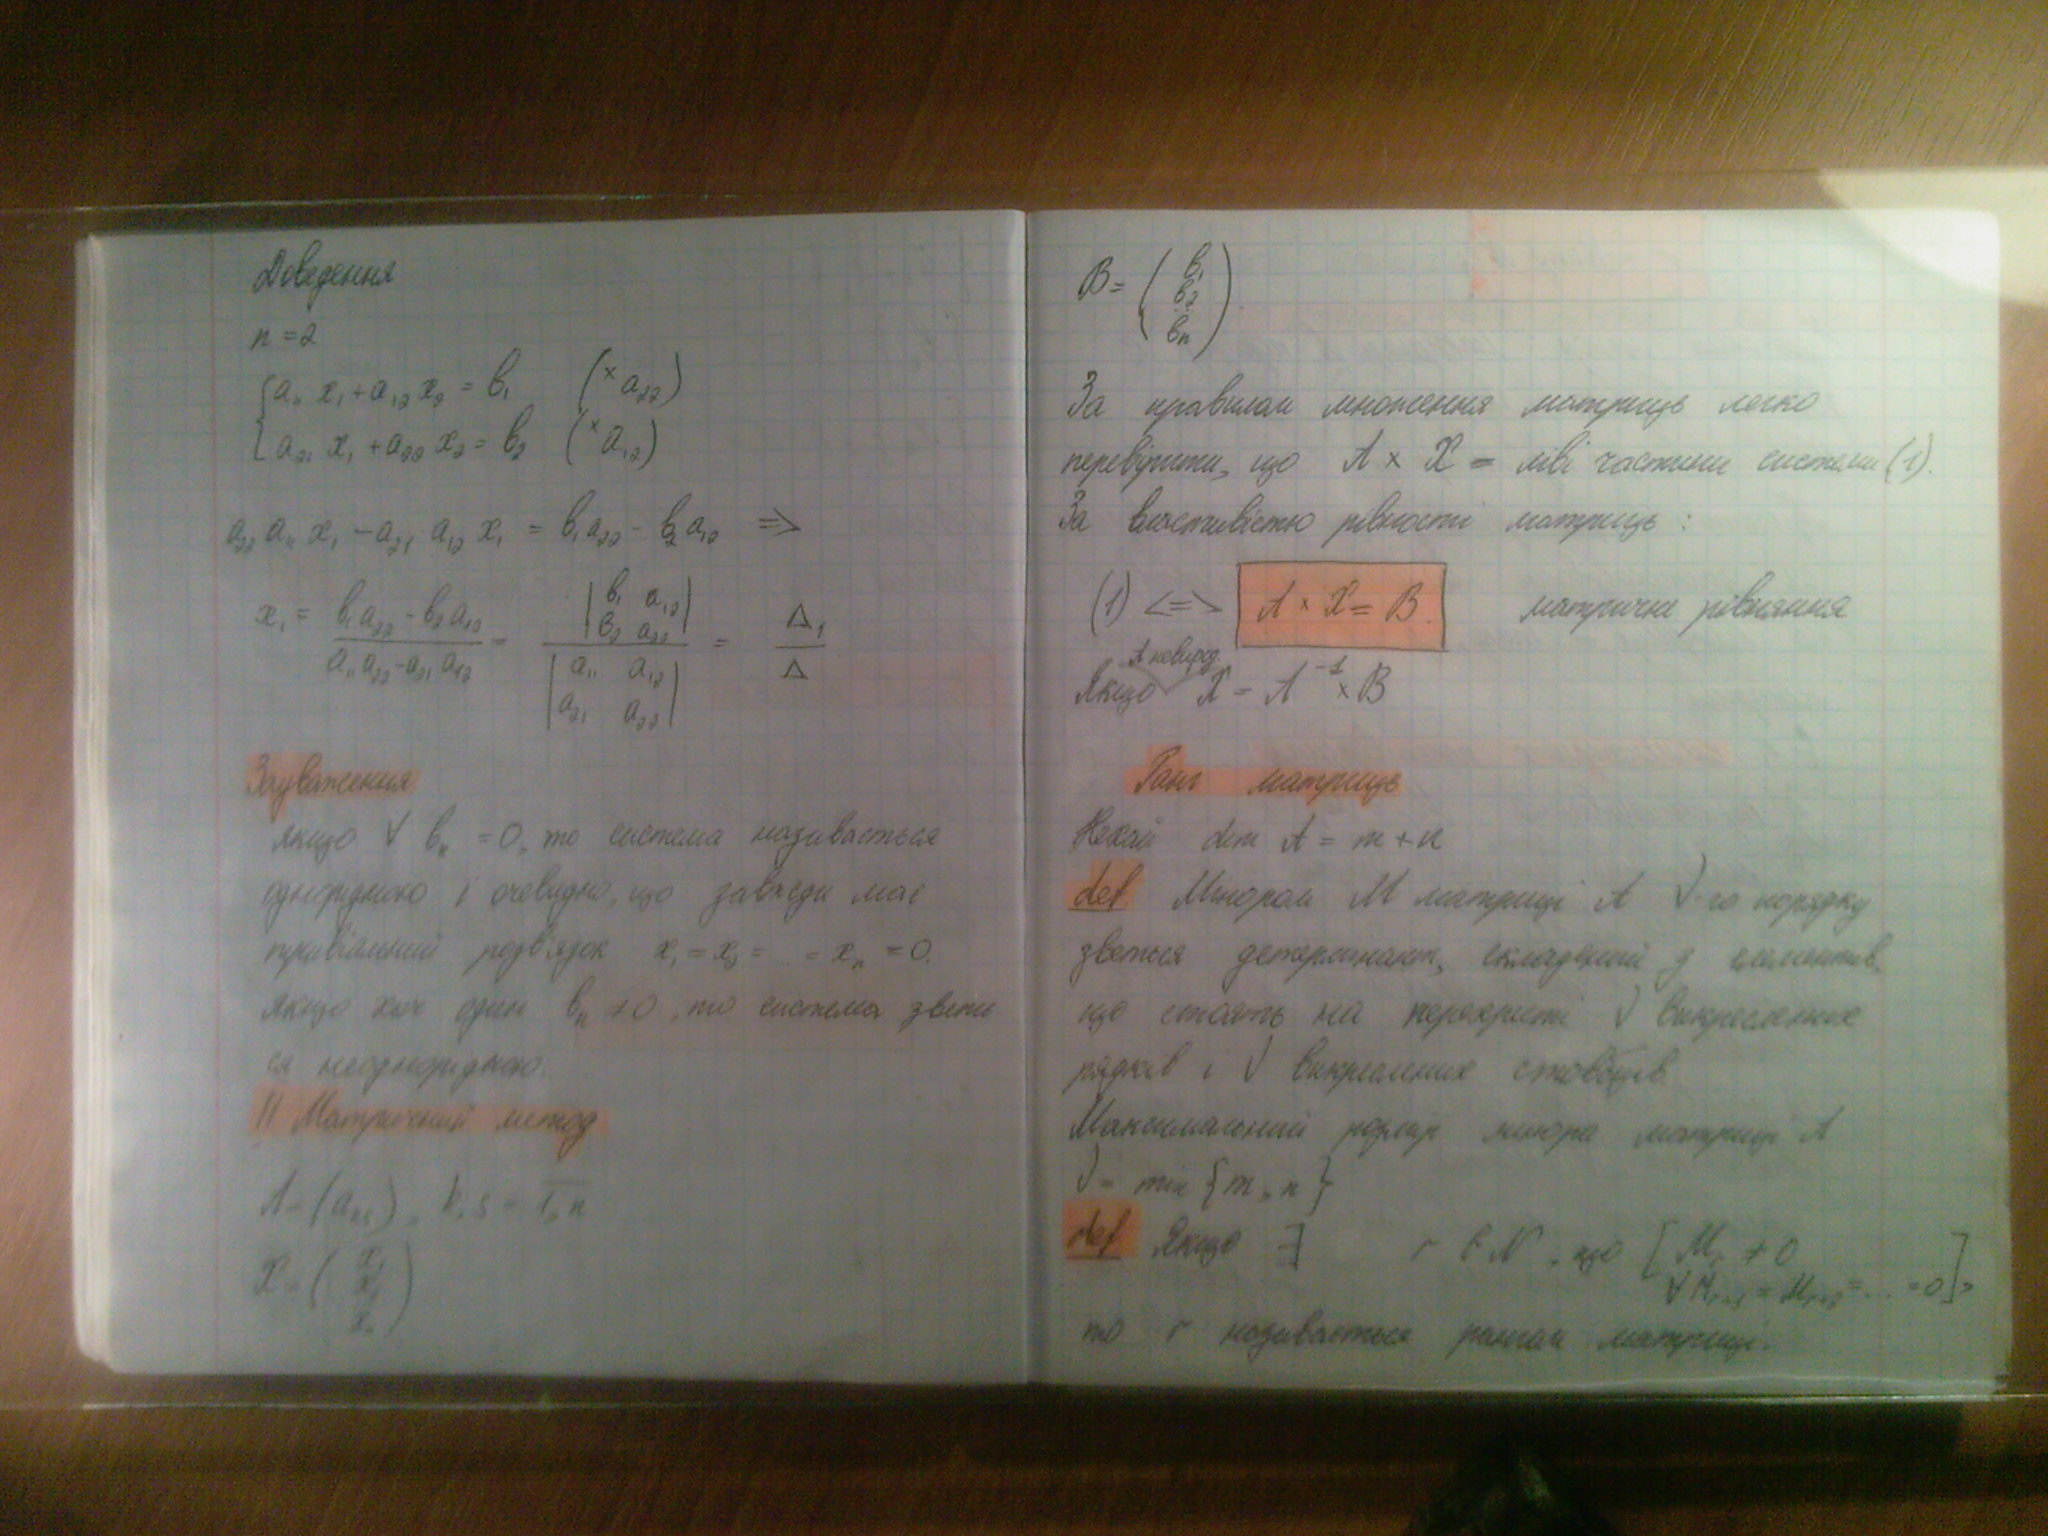 Доведення
n = 2
{ a₁₁ x₁ + a₁₂ x₂ = b₁ (× a₂₂)
{ a₂₁ x₁ + a₂₂ x₂ = b₂ (× a₁₂)
a₂₂ a₁₁ x₁ − a₂₁ a₁₂ x₁ = b₁ a₂₂ − b₂ a₁₂ =>
x₁ = (b₁ a₂₂ − b₂ a₁₂) / (a₁₁ a₂₂ − a₂₁ a₁₂) = |b₁ a₁₂; b₂ a₂₂| / |a₁₁ a₁₂; a₂₁ a₂₂| = Δ₁ / Δ
Зауваження
якщо ∀ bₖ = 0, то система називається
однорідною і очевидно, що завжди має
тривіальний розв'язок x₁ = x₂ = ... = xₙ = 0.
якщо хоч один bₖ ≠ 0, то система зветь
ся неоднорідною.
II Матричний метод
A = (aₖₛ), k, s = 1, n
X = ( x₁
x₂
xₙ )
B = ( b₁
b₂
bₙ )
За правилом множення матриць легко
перевірити, що A × X = ліві частини системи (1).
За властивістю рівності матриць :
(1) <=> A × X = B. матричне рівняння
A невирод.
Якщо X = A⁻¹ × B
Ранг матриць
Нехай dim A = m × n
def. Мінором M матриці A ν-го порядку
зветься детермінант, складений з елементів,
що стоять на перехресті ν викреслених
рядків і ν викреслених стовбців.
Максимальний розмір мінора матриці A
ν = min {m, n}
def Якщо ∃ r ∈ N, що [ Mᵣ ≠ 0
∀ Mᵣ₊₁ = Mᵣ₊₂ = ... = 0 ],
то r називається рангом матриці.